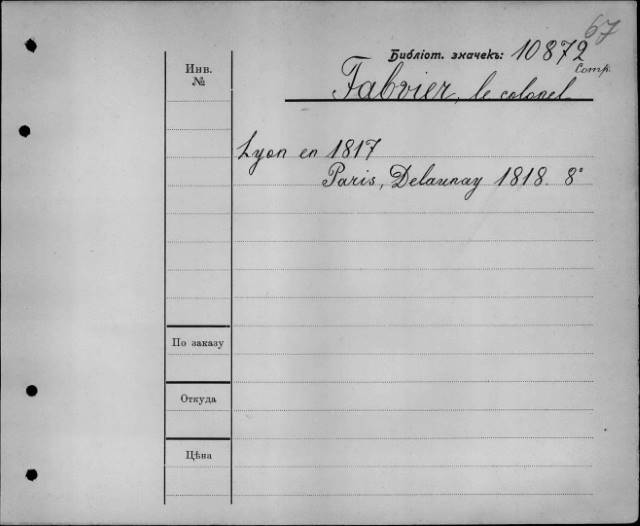 67
Библіот. значекъ: 10872
Comp.
Инв.
№
Fabvier, le colonel
Lyon en 1817
Paris, Delaunay 1818. 8°
По заказу
Откуда
Цѣна